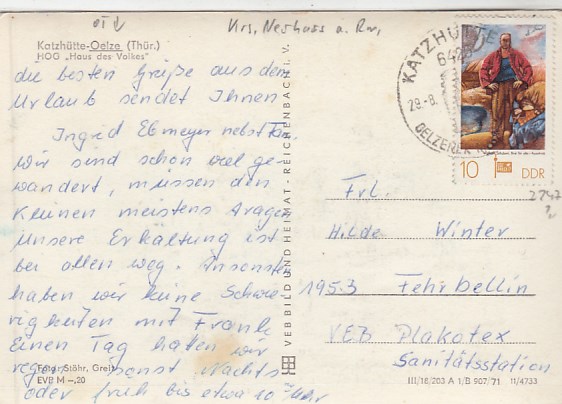 Krs. Neuhaus a. Rw.
Katzhütte-Oelze (Thür.)
HOG „Haus des Volkes"
die besten Grüße aus dem
Urlaub sendet Ihnen
Ingrid Ebmeyer nebst Fam.
wir sind schon viel ge-
wandert, müssen den
Kleinen meistens tragen
Unsere Erkältung ist
bei allen weg. Ansonsten
haben wir keine Schwie-
rigkeiten mit Frank
Einen Tag haten wir
regen, sonst Nachts
oder früh bis etwa 10 Uhr
Foto: Stöhr, Greiz
EVP M –,20
VEB BILD UND HEIMAT · REICHENBACH i. V.
KATZHÜTTE
642
29.-8.
OELZER
10 DDR
2747
?
Frl.
Hilde Winter
1953 Fehrbellin
VEB Plakotex
Sanitätsstation
III/18/203 A 1/B 907/71 11/4733